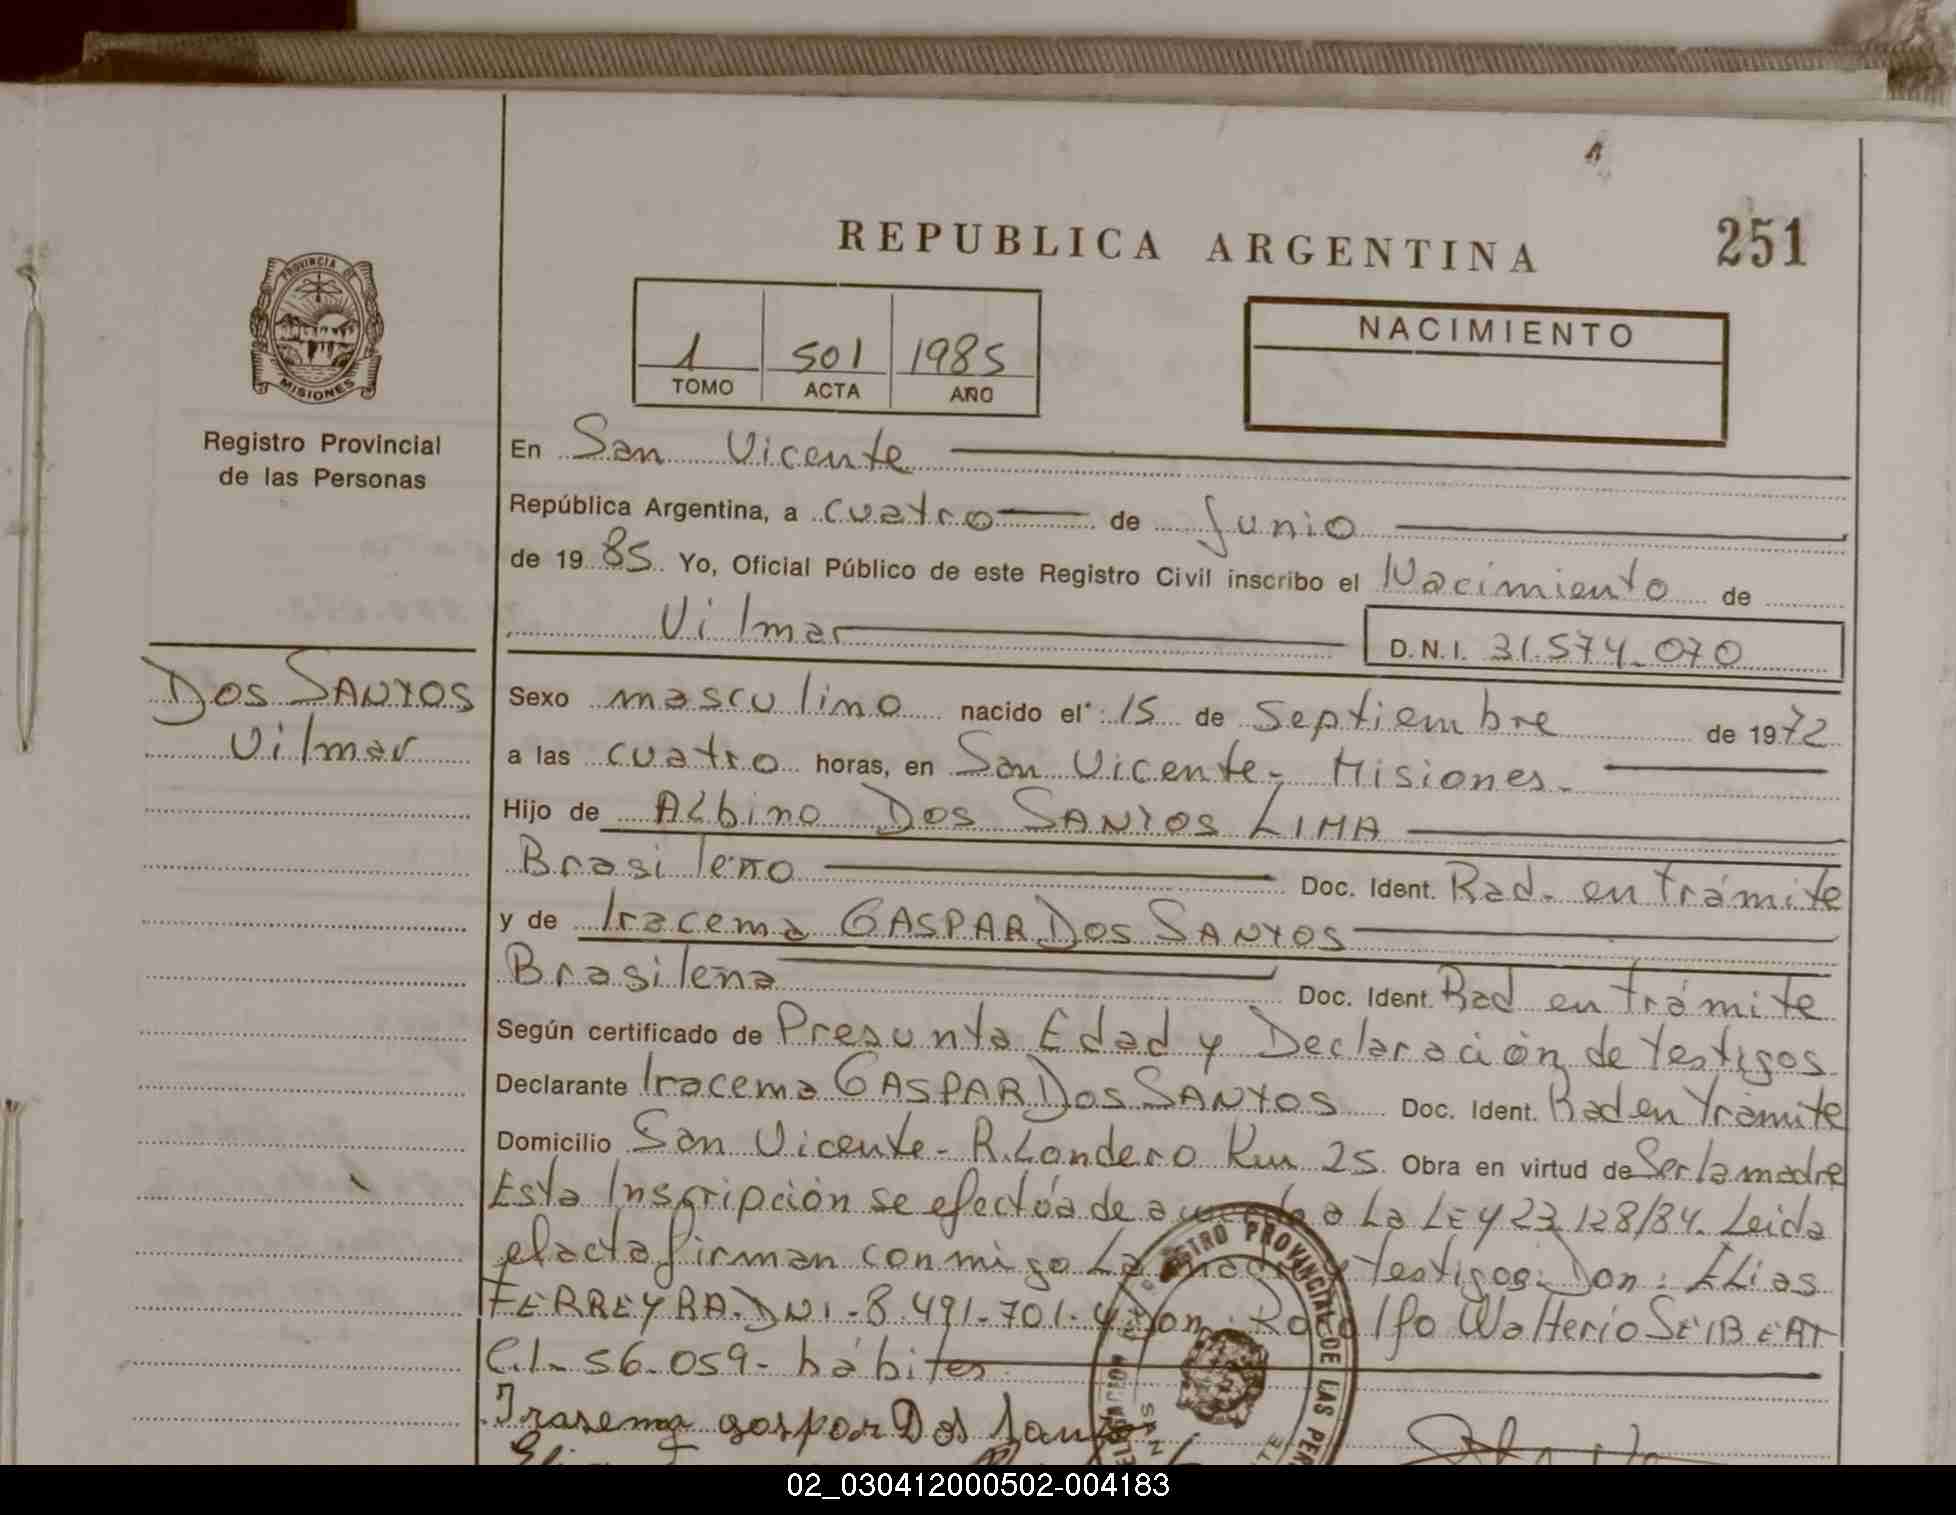 REPUBLICA ARGENTINA
251
PROVINCIA DE
MISIONES
Registro Provincial
de las Personas
1 501 1985
TOMO ACTA AÑO
NACIMIENTO
En San Vicente
República Argentina, a cuatro de Junio
de 1985 Yo, Oficial Público de este Registro Civil inscribo el Nacimiento de
Vilmar D.N.I. 31.574.070
DOS SANTOS
Vilmar
Sexo masculino nacido el: 15 de Septiembre de 1972
a las cuatro horas, en San Vicente - Misiones.
Hijo de Albino DOS SANTOS LIMA
Brasileño Doc. Ident. Rad. en trámite
y de Iracema GASPAR DOS SANTOS
Brasileña Doc. Ident. Rad en trámite
Según certificado de Presunta Edad y Declaración de testigos
Declarante Iracema GASPAR DOS SANTOS Doc. Ident. Rad en trámite
Domicilio San Vicente - R. Londero Km 25 Obra en virtud de Ser la madre
Esta Inscripción se efectúa de acuerdo a La LEY 23.128/84. Leida
el acta firman conmigo La madre y testigos: Don: Elias
FERREYRA. DNI - 8.491.701. y Don: Rodolfo Walterio SEIBEAT
C.I. 56.059 - hábiles
Irasema gaspar Dos Santos
REGISTRO PROVINCIAL DE LAS PER
02_030412000502-004183